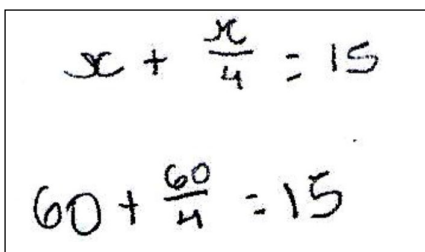 x + x/4 = 15
60 + 60/4 = 15